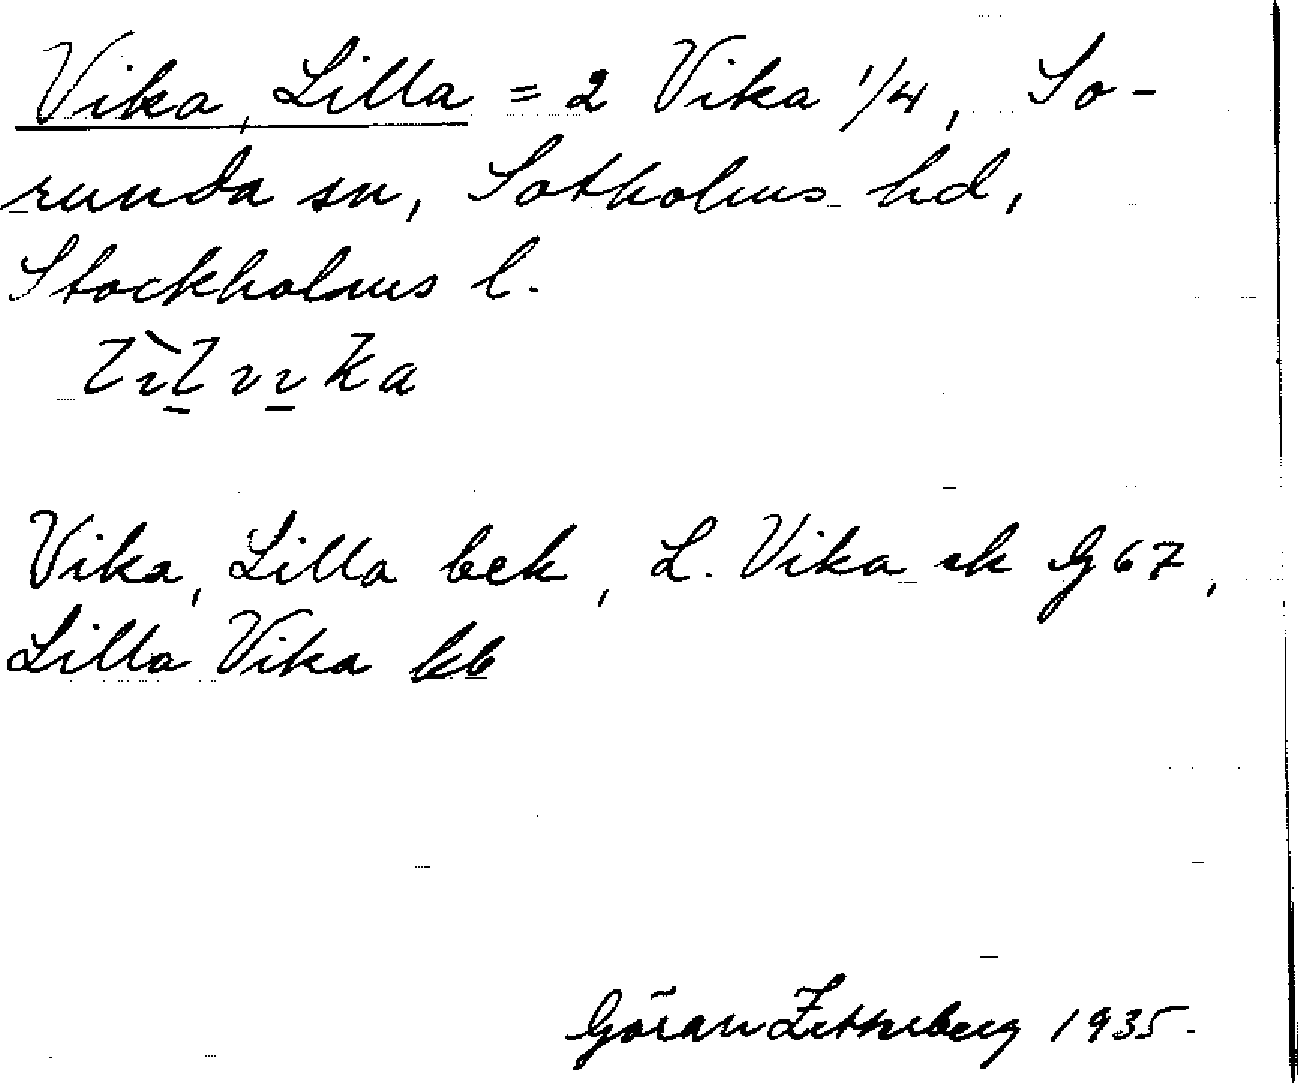 Vika, Lilla = 2 Vika 1/4, So-
runda sn, Sotholms hd,
Stockholms l.
Vika, Lilla bek, L. Vika ek G 67,
Lilla Vika kb
Göran Zetterberg 1935.